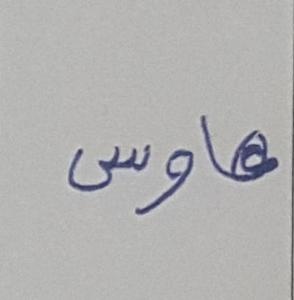 هاوسی